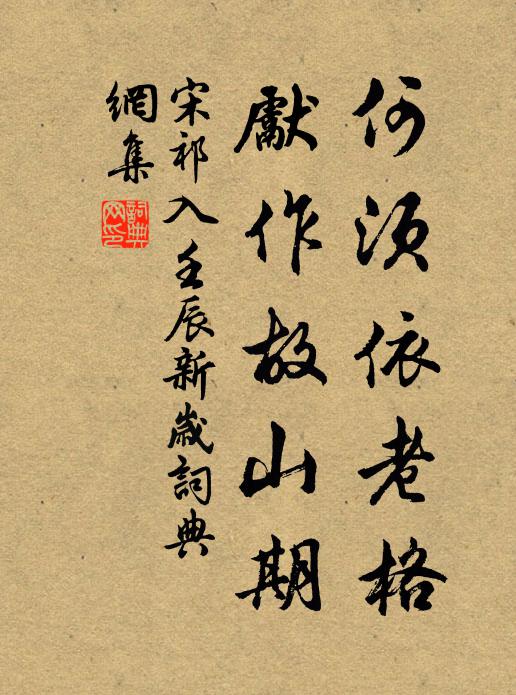 何須依老格
獻作故山期
宋祁入壬辰新歲詞典
網集
詞典
网印